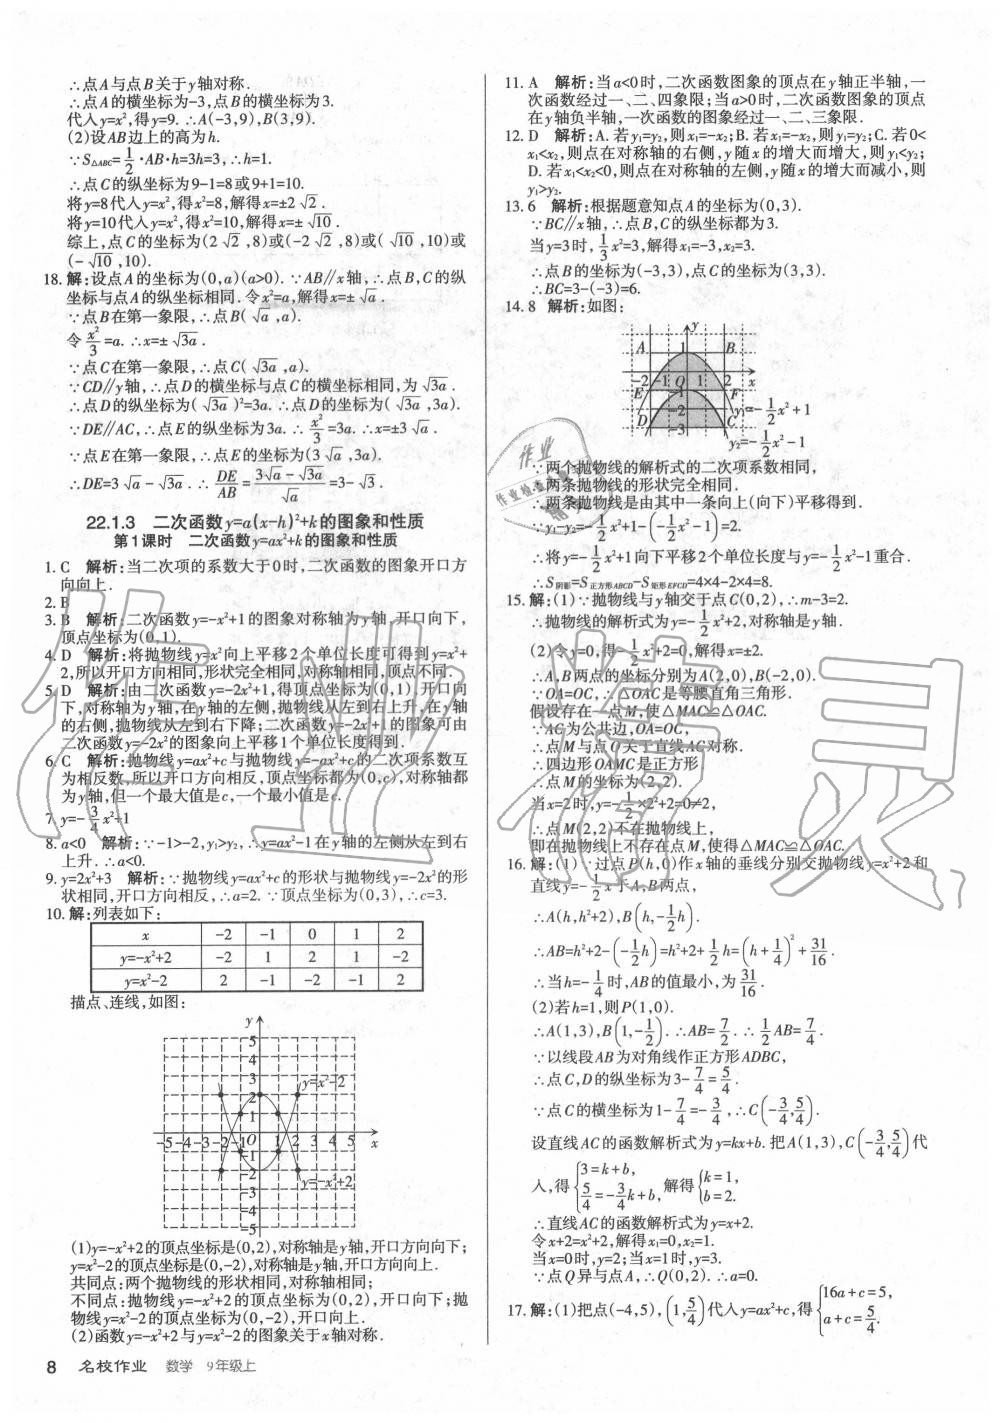 ∴点A与点B关于y轴对称.
∴点A的横坐标为-3,点B的横坐标为3.
代入y=x²,得y=9. ∴A(-3,9),B(3,9).
(2)设AB边上的高为h.
∵S△ABC=1/2·AB·h=3h=3,∴h=1.
∴点C的纵坐标为9-1=8或9+1=10.
将y=8代入y=x²,得x²=8,解得x=±2√2.
将y=10代入y=x²,得x²=10,解得x=±√10.
综上,点C的坐标为(2√2,8)或(-2√2,8)或(√10,10)或
(-√10,10).
18. 解:设点A的坐标为(0,a)(a>0). ∵AB//x轴,∴点B,C的纵
坐标与点A的纵坐标相同.令x²=a,解得x=±√a.
∵点B在第一象限,∴点B(√a,a).
令x²/3=a. ∴x=±√3a.
∵点C在第一象限,∴点C(√3a,a).
∵CD//y轴,∴点D的横坐标与点C的横坐标相同,为√3a.
∴点D的纵坐标为(√3a)²=3a. ∴点D的坐标为(√3a,3a).
∵DE//AC,∴点E的纵坐标为3a. ∴x²/3=3a. ∴x=±3√a.
∵点E在第一象限,∴点E的坐标为(3√a,3a).
∴DE=3√a-√3a. ∴DE/AB=(3√a-√3a)/√a=3-√3.
22.1.3 二次函数y=a(x-h)²+k的图象和性质
第1课时 二次函数y=ax²+k的图象和性质
1. C 解析:当二次项的系数大于0时,二次函数的图象开口方
向向上.
2. B
3. B 解析:二次函数y=-x²+1的图象对称轴为y轴,开口向下,
顶点坐标为(0,1).
4. D 解析:将抛物线y=x²向上平移2个单位长度可得到y=x²+
2,所以开口方向相同,形状完全相同,对称轴相同,顶点不同.
5. D 解析:由二次函数y=-2x²+1,得顶点坐标为(0,1),开口向
下,对称轴为y轴,在y轴的左侧,抛物线从左到右上升,在y轴
的右侧,抛物线从左到右下降;二次函数y=-2x²+1的图象可由
二次函数y=-2x²的图象向上平移1个单位长度得到.
6. C 解析:抛物线y=ax²+c与抛物线y=-ax²+c的二次项系数互
为相反数,所以开口方向相反,顶点坐标都为(0,c),对称轴都
为y轴,但一个最大值是c,一个最小值是c.
7. y=-3/4x²+1
8. a<0 解析:∵-1>-2,y₁>y₂,∴y=ax²-1在y轴的左侧从左到右
上升. ∴a<0.
9. y=2x²+3 解析:∵抛物线y=ax²+c的形状与抛物线y=-2x²的形
状相同,开口方向相反,∴a=2. ∵顶点坐标为(0,3),∴c=3.
10. 解:列表如下:
x -2 -1 0 1 2
y=-x²+2 -2 1 2 1 -2
y=x²-2 2 -1 -2 -1 2
描点、连线,如图:
y
5
4
3
2
1
y=x²-2
-5 -4 -3 -2 -1 O 1 2 3 4 5 x
-1
-2
-3
-4
-5
y=-x²+2
(1)y=-x²+2的顶点坐标是(0,2),对称轴是y轴,开口方向向下;
y=x²-2的顶点坐标是(0,-2),对称轴是y轴,开口方向向上.
共同点:两个抛物线的形状相同,对称轴相同;
不同点:抛物线y=-x²+2的顶点坐标为(0,2),开口向下;抛
物线y=x²-2的顶点坐标为(0,-2),开口向上.
(2)函数y=-x²+2与y=x²-2的图象关于x轴对称.
8 名校作业 数学 9年级上
11. A 解析:当a<0时,二次函数图象的顶点在y轴正半轴,一
次函数经过一、二、四象限;当a>0时,二次函数图象的顶点
在y轴负半轴,一次函数的图象经过一、二、三象限.
12. D 解析:A.若y₁=y₂,则x₁=-x₂;B.若x₁=-x₂,则y₁=y₂;C.若0<
x₁<x₂,则点在对称轴的右侧,y随x的增大而增大,则y₁<y₂;
D.若x₁<x₂<0,则点在对称轴的左侧,y随x的增大而减小,则
y₁>y₂.
13. 6 解析:根据题意知点A的坐标为(0,3).
∵BC//x轴,∴点B,C的纵坐标都为3.
当y=3时,1/3x²=3,解得x₁=-3,x₂=3.
∴点B的坐标为(-3,3),点C的坐标为(3,3).
∴BC=3-(-3)=6.
14. 8 解析:如图:
y
A 1 B
-2 -1 O 1 2 x
E -1 F
D -2 C
-3
y₁=-1/2x²+1
y₂=-1/2x²-1
∵两个抛物线的解析式的二次项系数相同,
∴两条抛物线的形状完全相同.
∴两条抛物线是由其中一条向上(向下)平移得到.
∵y₁-y₂=-1/2x²+1-(-1/2x²-1)=2.
∴将y=-1/2x²+1向下平移2个单位长度与y=-1/2x²-1重合.
∴S阴影=S正方形ABCD-S矩形EFCD=4×4-2×4=8.
15. 解:(1)∵抛物线与y轴交于点C(0,2),∴m-3=2.
∴抛物线的解析式为y=-1/2x²+2,对称轴是y轴.
(2)令y=0,得-1/2x²+2=0,解得x=±2.
∴A,B两点的坐标分别为A(2,0),B(-2,0).
∵OA=OC,∴△OAC是等腰直角三角形.
假设存在一点M,使△MAC≌△OAC.
∵AC为公共边,OA=OC,
∴点M与点O关于直线AC对称.
∴四边形OAMC是正方形.
∴点M的坐标为(2,2).
当x=2时,y=-1/2×2²+2=0≠2,
∴点M(2,2)不在抛物线上,
即在抛物线上不存在点M,使得△MAC≌△OAC.
16. 解:(1)∵过点P(h,0)作x轴的垂线分别交抛物线y=x²+2和
直线y=-1/2x于A,B两点,
∴A(h,h²+2),B(h,-1/2h).
∴AB=h²+2-(-1/2h)=h²+2+1/2h=(h+1/4)²+31/16.
∴当h=-1/4时,AB的值最小,为31/16.
(2)若h=1,则P(1,0).
∴A(1,3),B(1,-1/2). ∴AB=7/2. ∴1/2AB=7/4.
∵以线段AB为对角线作正方形ADBC,
∴点C,D的纵坐标为3-7/4=5/4.
∵点C的横坐标为1-7/4=-3/4,∴C(-3/4,5/4).
设直线AC的函数解析式为y=kx+b.把A(1,3),C(-3/4,5/4)代
入,得{3=k+b, 5/4=-3/4k+b, 解得{k=1, b=2.
∴直线AC的函数解析式为y=x+2.
令x+2=x²+2,解得x₁=0,x₂=1.
当x=0时,y=2;当x=1时,y=3.
∵点Q异与点A,∴Q(0,2). ∴a=0.
17. 解:(1)把点(-4,5),(1,5/4)代入y=ax²+c,得{16a+c=5, a+c=5/4.
作业精灵